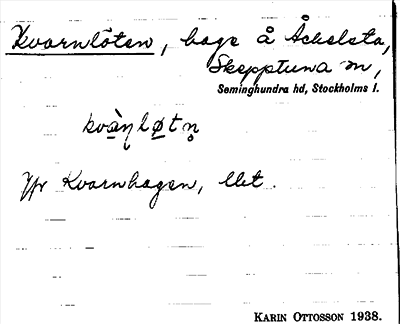 Kvarnlöten, hage å Åchelsta,
Skepptuna sn,
Seminghundra hd, Stockholms l.
kvàɳløtn̥
Jfr Kvarnhagen, Ubet.
KARIN OTTOSSON 1938.